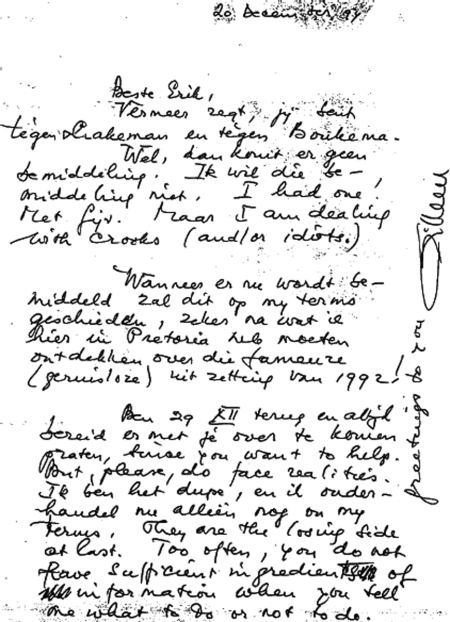 20 December '94
Beste Erik,
Vermeer zegt, jij bent
tegen Brakeman en tegen Boukema.
Wel, dan komt er geen
bemiddeling. Ik wil die be-
middeling niet. I had one.
Met Gijs. Maar I am dealing
with crooks (and/or idiots.)
Wanneer er nu wordt be-
middeld zal dit op my terms
geschieden, zeker na wat ik
hier in Pretoria heb moeten
ontdekken over die fameuze
(geruisloze) uitzetting van 1992!
Ben 29 XII terug en altijd
bereid er met je over te komen
praten, since you want to help.
But, please, do face realities.
Ik ben het dupe, en ik onder-
handel nu alleen nog on my
terms. They are the losing side
at last. Too often, you do not
have sufficient ingredients of
information when you tell
me what to do or not to do.
greetings to you
Willem